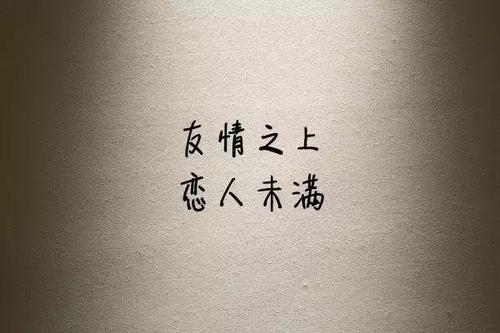 友情之上
恋人未满